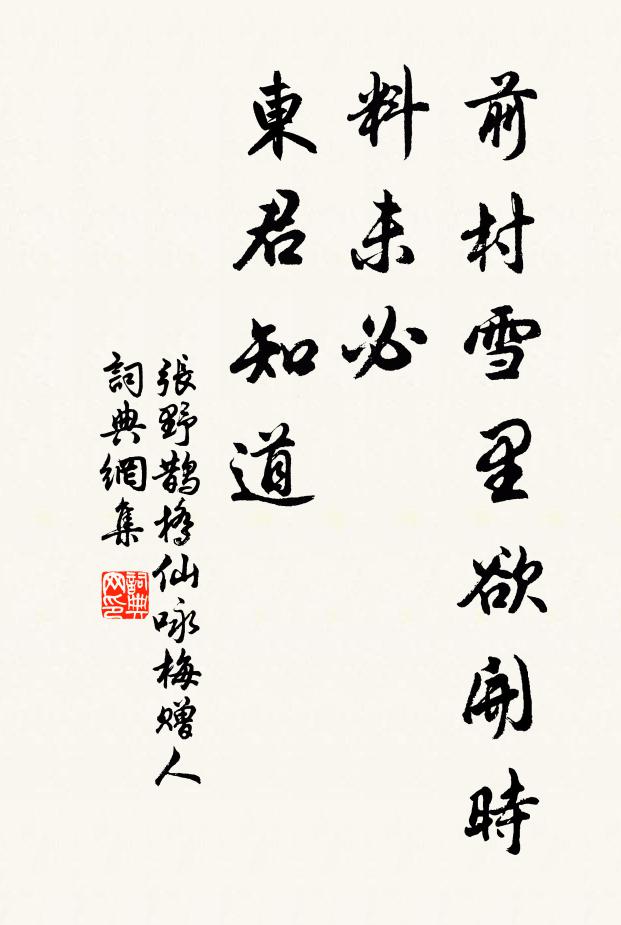 前村雪里欲開時
料未必
東君知道
張野鵲橋仙咏梅贈人
詞典網集
詞典网印